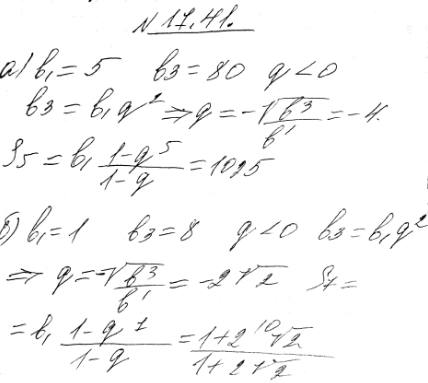 № 17.41.
а) b₁ = 5 b₃ = 80 q < 0
b₃ = b₁q² ⇒ q = -√(b₃/b₁) = -4.
S₅ = b₁ (1-q⁵)/(1-q) = 1025
б) b₁ = 1 b₃ = 8 q < 0 b₃ = b₁q²
⇒ q = -√(b₃/b₁) = -2√2 S₇ =
= b₁ (1-q⁷)/(1-q) = (1+2¹⁰√2)/(1+2√2)